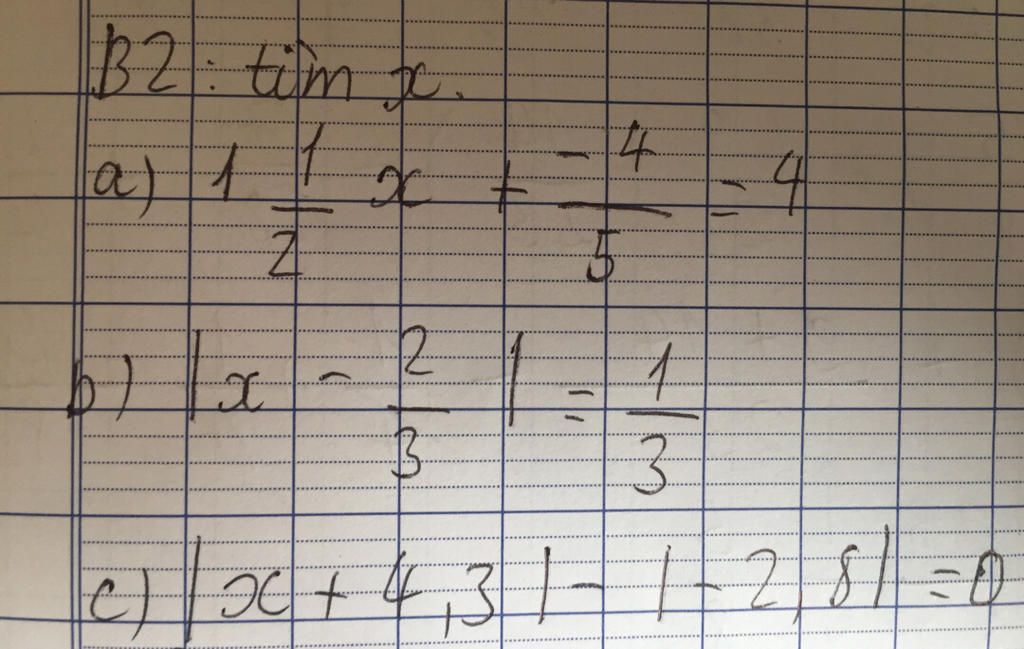 B2: tìm x.
a) 1 1/2 x + -4/5 = 4
b) |x - 2/3| = 1/3
c) |x + 4,3| - |-2,8| = 0